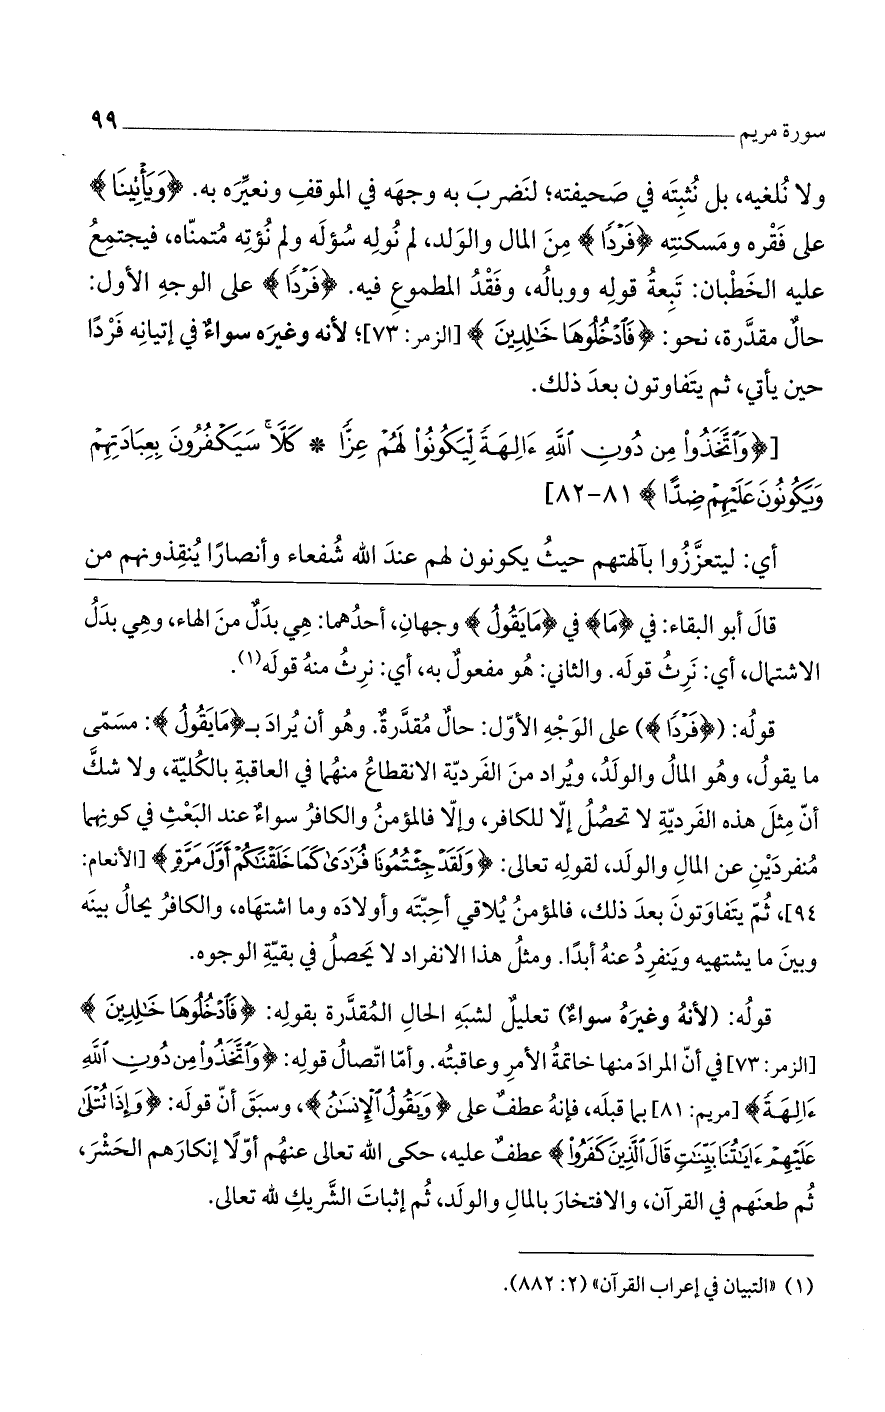 سورة مريم ٩٩
ولا نُلغيه، بل نُثبِتَه في صَحيفته؛ لنَضربَ به وجهَه في الموقفِ ونعيِّرَه به. ﴿وَيَأْتِينَا﴾
على فَقْره ومَسكنتِه ﴿فَرْدًا﴾ مِنَ المال والوَلد، لم نُولِه سُؤلَه ولم نُؤتِه مُتمنّاه، فيجتمِعُ
عليه الخَطْبان: تَبِعةُ قولِه ووبالُه، وفَقْدُ المطموعِ فيه. ﴿فَرْدًا﴾ على الوجهِ الأول:
حالٌ مقدَّرة، نحو: ﴿فَٱدْخُلُوهَا خَٰلِدِينَ﴾ [الزمر: ٧٣]؛ لأنه وغيرَه سواءٌ في إتيانِه فَرْدًا
حين يأتي، ثم يتَفاوتون بعدَ ذلك.
[﴿وَٱتَّخَذُوا۟ مِن دُونِ ٱللَّهِ ءَالِهَةً لِّيَكُونُوا۟ لَهُمْ عِزًّا * كَلَّا ۚ سَيَكْفُرُونَ بِعِبَادَتِهِمْ
وَيَكُونُونَ عَلَيْهِمْ ضِدًّا﴾ ٨١-٨٢]
أي: ليتعزَّزُوا بآلهتهم حيثُ يكونون لهم عندَ الله شُفعاء وأنصارًا يُنقِذونهم من
قالَ أبو البقاء: في ﴿مَا﴾ في ﴿مَا يَقُولُ﴾ وجهانِ، أحدُهما: هِي بدَلٌ منَ الهاء، وهِي بدَلُ
الاشتمال، أي: نَرِثُ قولَه. والثاني: هُو مفعولٌ به، أي: نرِثُ منهُ قولَه(١).
قولُه: (﴿فَرْدًا﴾) على الوَجْهِ الأوّل: حالٌ مُقدَّرةٌ. وهُو أن يُرادَ بـ﴿مَا يَقُولُ﴾: مسَمّى
ما يقولُ، وهُو المالُ والولَدُ، ويُراد منَ الفَرديّة الانقطاعُ منهُما في العاقبةِ بالكُليّة، ولا شكَّ
أنّ مِثلَ هذه الفَرديّةِ لا تحصُلُ إلّا للكافر، وإلّا فالمؤمنُ والكافرُ سواءٌ عند البَعْثِ في كونِهما
مُنفردَيْنِ عن المالِ والولَد، لقولِه تعالى: ﴿وَلَقَدْ جِئْتُمُونَا فُرَٰدَىٰ كَمَا خَلَقْنَٰكُمْ أَوَّلَ مَرَّةٍ﴾ [الأنعام:
٩٤]، ثُمّ يتفاوَتونَ بعدَ ذلك، فالمؤمنُ يُلاقي أحِبّتَه وأولادَه وما اشتهَاه، والكافرُ يحالُ بينَه
وبينَ ما يشتهيه ويَنفرِدُ عنهُ أبدًا. ومثلُ هذا الانفراد لا يَحصلُ في بقيّةِ الوجوه.
قولُه: (لأنهُ وغيرَهُ سواءٌ) تعليلٌ لشبَهِ الحالِ المُقدَّرة بقولِه: ﴿فَٱدْخُلُوهَا خَٰلِدِينَ﴾
[الزمر: ٧٣] في أنّ المرادَ منها خاتمةُ الأمرِ وعاقبتُه. وأمّا اتّصالُ قولِه: ﴿وَٱتَّخَذُوا۟ مِن دُونِ ٱللَّهِ
ءَالِهَةً﴾ [مريم: ٨١] بما قبلَه، فإنهُ عطفٌ على ﴿وَيَقُولُ ٱلْإِنسَٰنُ﴾، وسبَقَ أنّ قولَه: ﴿وَإِذَا تُتْلَىٰ
عَلَيْهِمْ ءَايَٰتُنَا بَيِّنَٰتٍ قَالَ ٱلَّذِينَ كَفَرُوا۟﴾ عطفٌ عليه، حكى الله تعالى عنهُم أوّلًا إنكارَهم الحَشْرَ،
ثُم طعنَهم في القرآن، والافتخارَ بالمالِ والولَد، ثُم إثباتَ الشَّريكِ لله تعالى.
(١) «التبيان في إعراب القرآن» (٢: ٨٨٢).